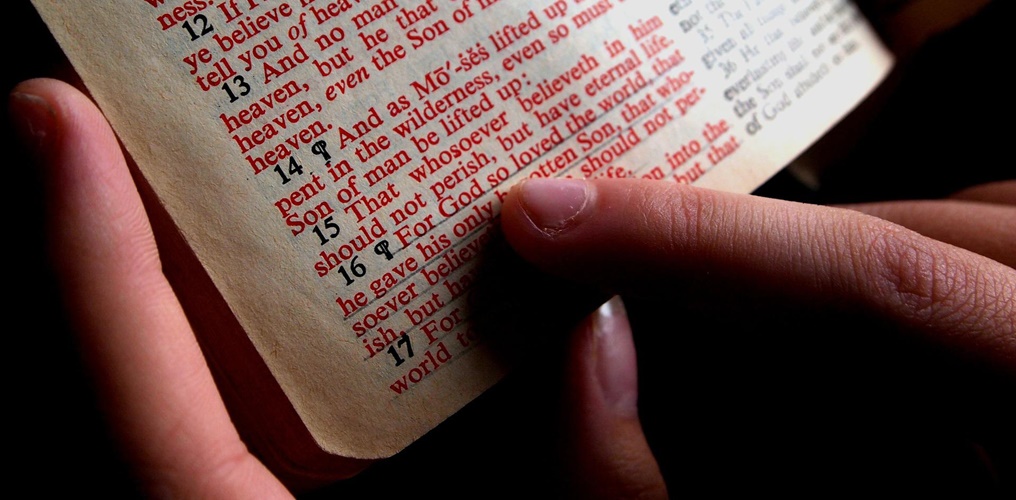 ness.
12 If
ye believe
tell you of heav
13 And no man
heaven, but he that
heaven, even the Son of m
heaven.
14 ¶ And as Mō´-s̆ĕs̆ lifted up
pent in the wilderness, even so must
Son of man be lifted up:
15 That whosoever believeth in him
should not perish, but have eternal life.
16 ¶ For God so loved the world, that
he gave his only otten Son, that who-
soever believe should not per-
ish, but ha life.
17 For on into the
world to but that
given
everlasting
the Son shall
of God